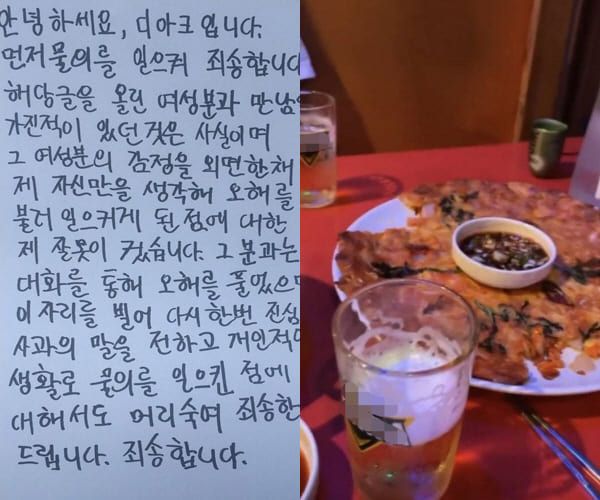 안녕하세요, 디아크입니다.
먼저 물의를 일으켜 죄송합니다
해당글을 올린 여성분과 만남을
가진적이 있던 것은 사실이며
그 여성분의 감정을 외면한채
제 자신만을 생각해 오해를
불러 일으키게 된 점에 대한
제 잘못이 컸습니다. 그분과는
대화를 통해 오해를 풀었으며
이 자리를 빌어 다시 한번 진심
사과의 말을 전하고 개인적인
생활로 물의를 일으킨 점에
대해서도 머리숙여 죄송한
드립니다. 죄송합니다.